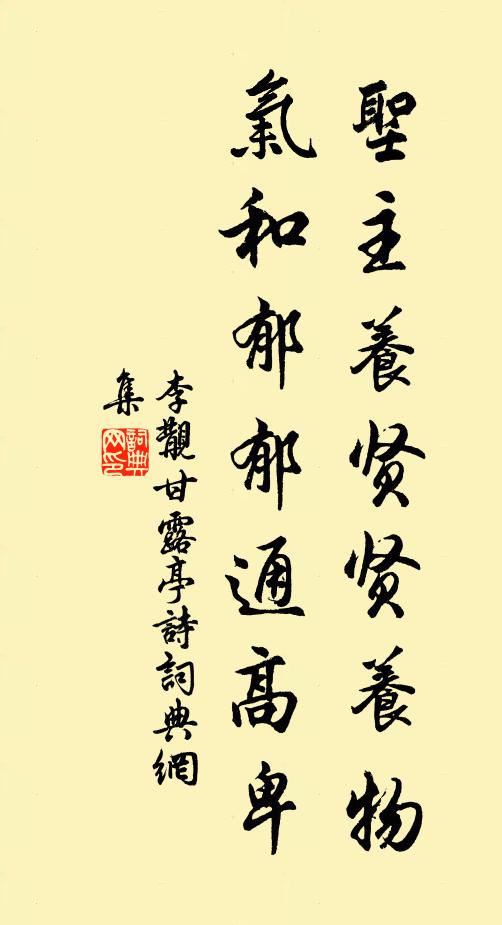 聖主養贤贤養物
氣和郁郁通高卑
李觀甘露亭詩詞典網
集
詞典
网印